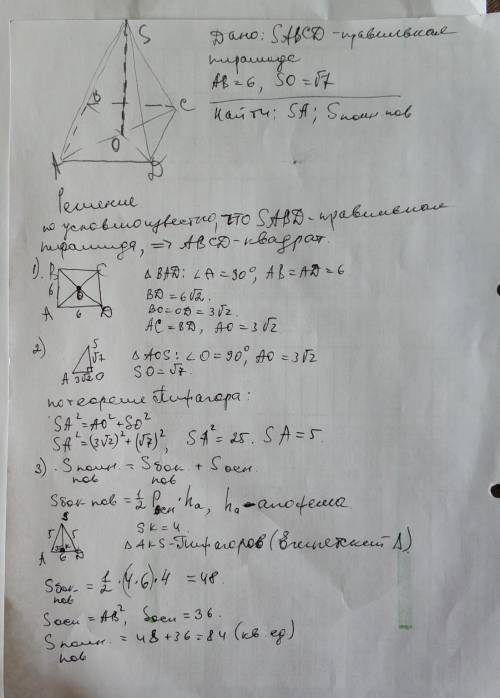 S
B
C
O
A
D
Дано: SABCD - правильная
пирамида
AB = 6, SO = √7
Найти: SA; Sполн. пов
Решение.
по условию известно, что SABD - правильная
пирамида, => ABCD - квадрат.
1) B C
6
A 6 D
△BAD: ∠A = 90°, AB = AD = 6
BD = 6√2.
BO = OD = 3√2
AC = BD, AO = 3√2
2) S
√7
A 3√2 O
△AOS: ∠O = 90°, AO = 3√2
SO = √7.
по теореме Пифагора:
SA² = AO² + SO²
SA² = (3√2)² + (√7)², SA² = 25. SA = 5.
3) Sполн. пов = Sбок. пов + Sосн.
Sбок пов = 1/2 Pосн · ha, ha - апофема
S
5 5
A 6 D
SK = 4
△AKS - Пифагоров (Египетский △)
Sбок. пов = 1/2 · (4·6)·4 = 48.
Sосн = AB², Sосн = 36.
Sполн. пов = 48 + 36 = 84 (кв. ед)